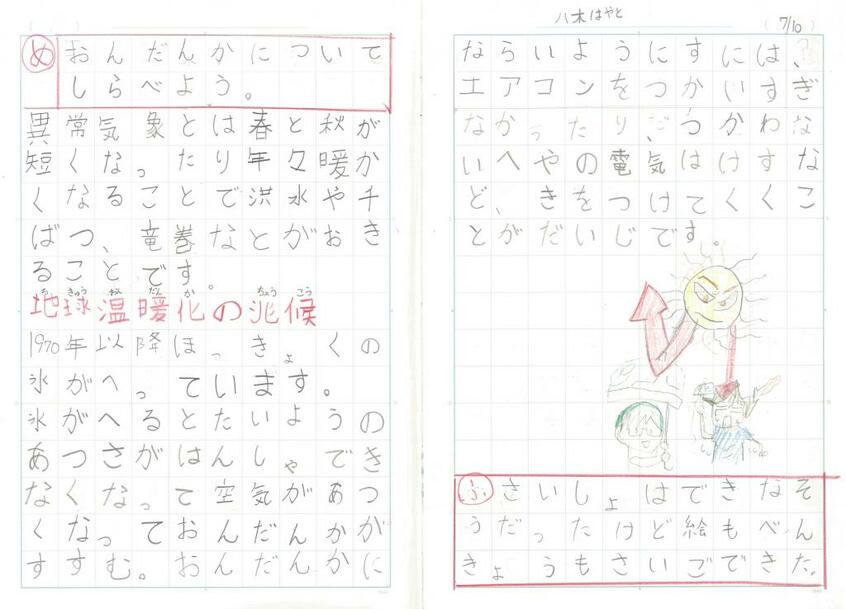 め おんだんかについて
しらべよう。
異常気象とは春と秋が
短くなったり年々暖か
くなることで洪水や干
ばつ、竜巻などがおき
ることです。
地球温暖化の兆候
ち きゅう おん だん か ちょう こう
1970年以降ほっきょくの
氷がへっています。
氷がへるとたいようの
あつさがはんしゃでき
なくなって空気があつ
くなっておんだんかが
すすむ。おんだんかに
八木はやと
(7/10)
ならいようにすには、
エアコンをつかいすぎ
なかったり、つかわな
いへやの電気はけすな
ど、きをつけてくくこ
とがだいじです。
ふ さいしょはできなそ
うだったけど絵もべん
きょうもさいごできた。